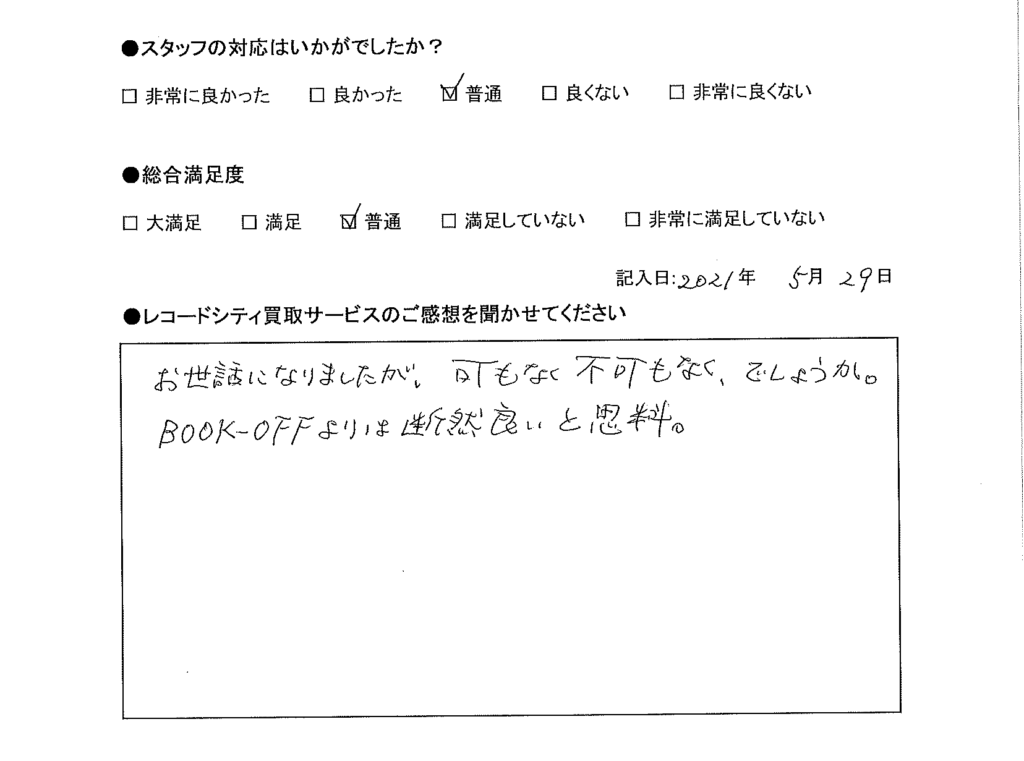 ●スタッフの対応はいかがでしたか？
□ 非常に良かった □ 良かった ☑ 普通 □ 良くない □ 非常に良くない
●総合満足度
□ 大満足 □ 満足 ☑ 普通 □ 満足していない □ 非常に満足していない
記入日:2021年 5月 29日
●レコードシティ買取サービスのご感想を聞かせてください
お世話になりましたが、可もなく不可もなく、でしょうか。
BOOK-OFFよりは断然良いと思料。